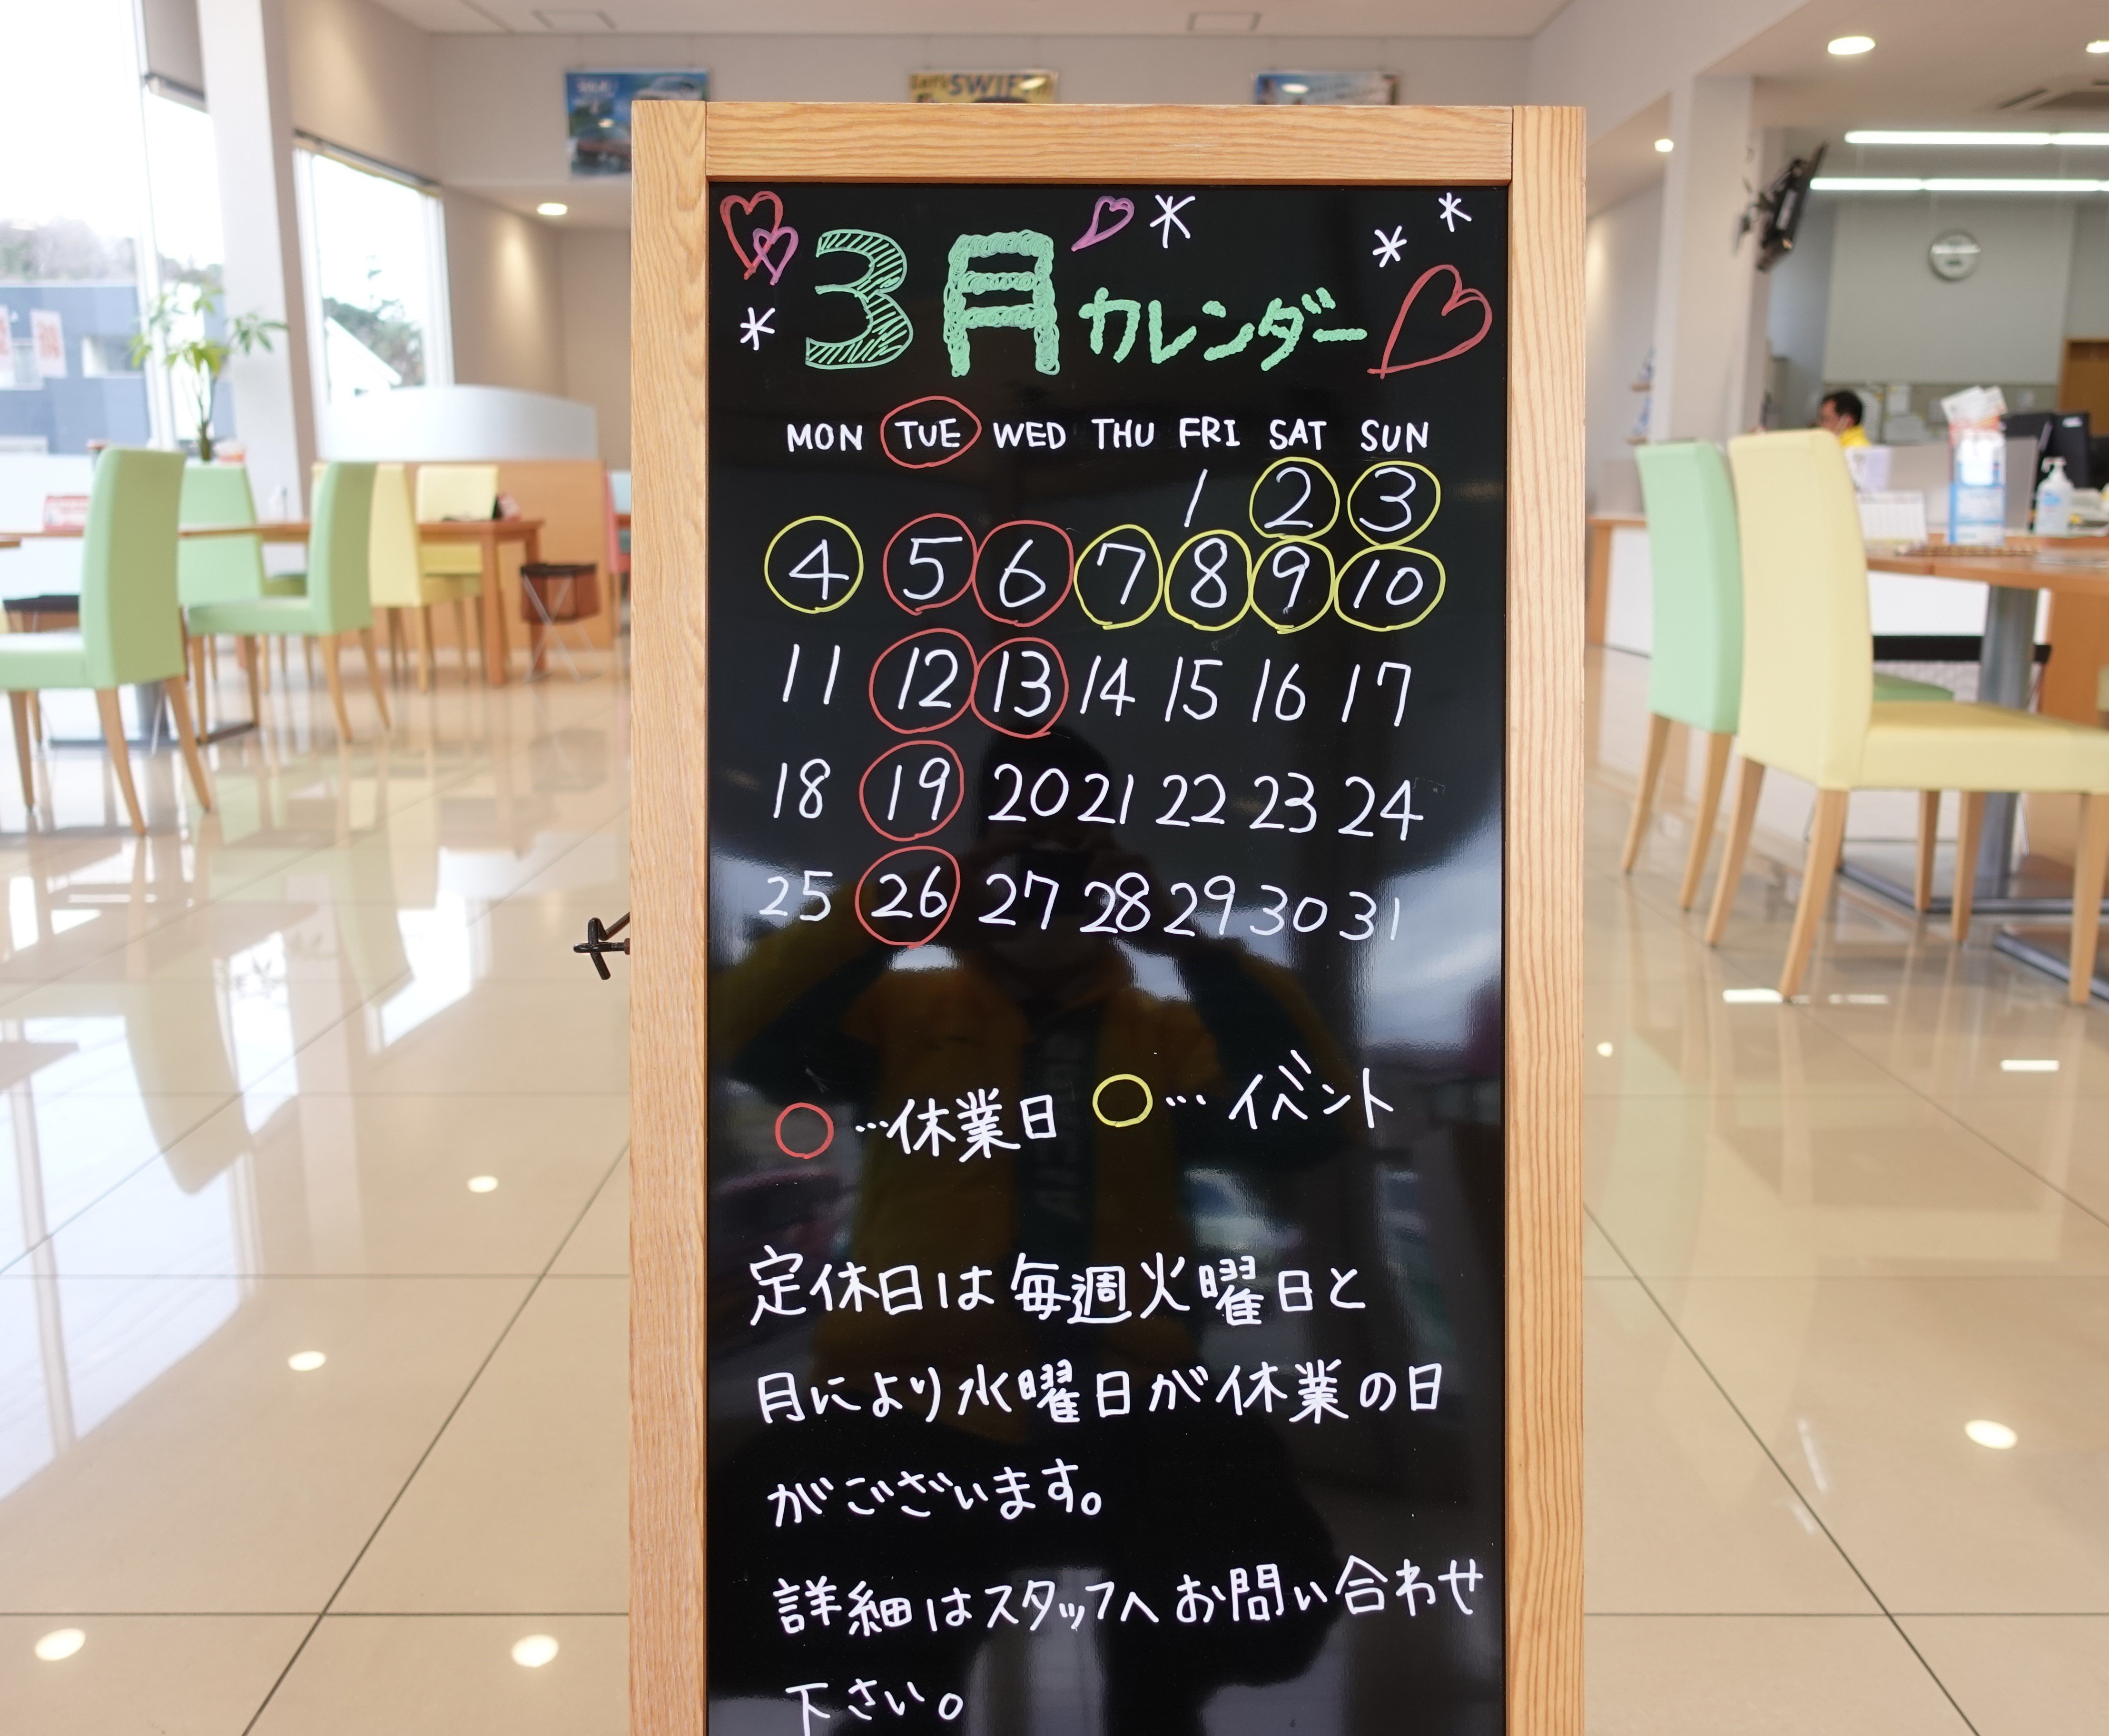 SWIFT
3月カレンダー
MON TUE WED THU FRI SAT SUN
1 2 3
4 5 6 7 8 9 10
11 12 13 14 15 16 17
18 19 20 21 22 23 24
25 26 27 28 29 30 31
○…休業日 ○… イベント
定休日は毎週火曜日と
月により水曜日が休業の日
がございます。
詳細はスタッフへお問い合わせ
下さい。